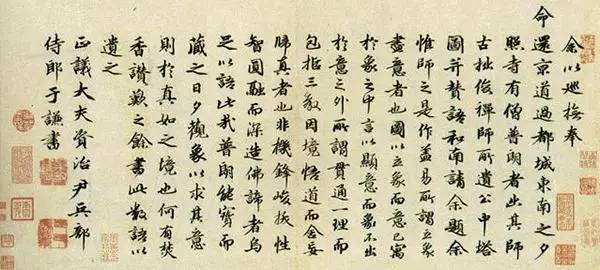 余以巡撫奉
命還京道過都城東南之夕
照寺有僧普朗者出其師
古拙俊禪師所遺公中塔
圖并賛語和南請余題余
惟師之是作葢易所謂立象
盡意者也圖以立象而意已寓
於象之中言以顯意而象不出
於意之外所謂貫通一理而
包括三教因境悟道而舍妄
歸真者也非機鋒峻拔性
智圓融而深造佛諦者烏
足以語此哉普朗能寶而
藏之日夕觀象以求其意
則於真如之境也何有焚
香讚歎之餘書此數語以
遺之
正議大夫資治尹兵部
侍郎于謙書